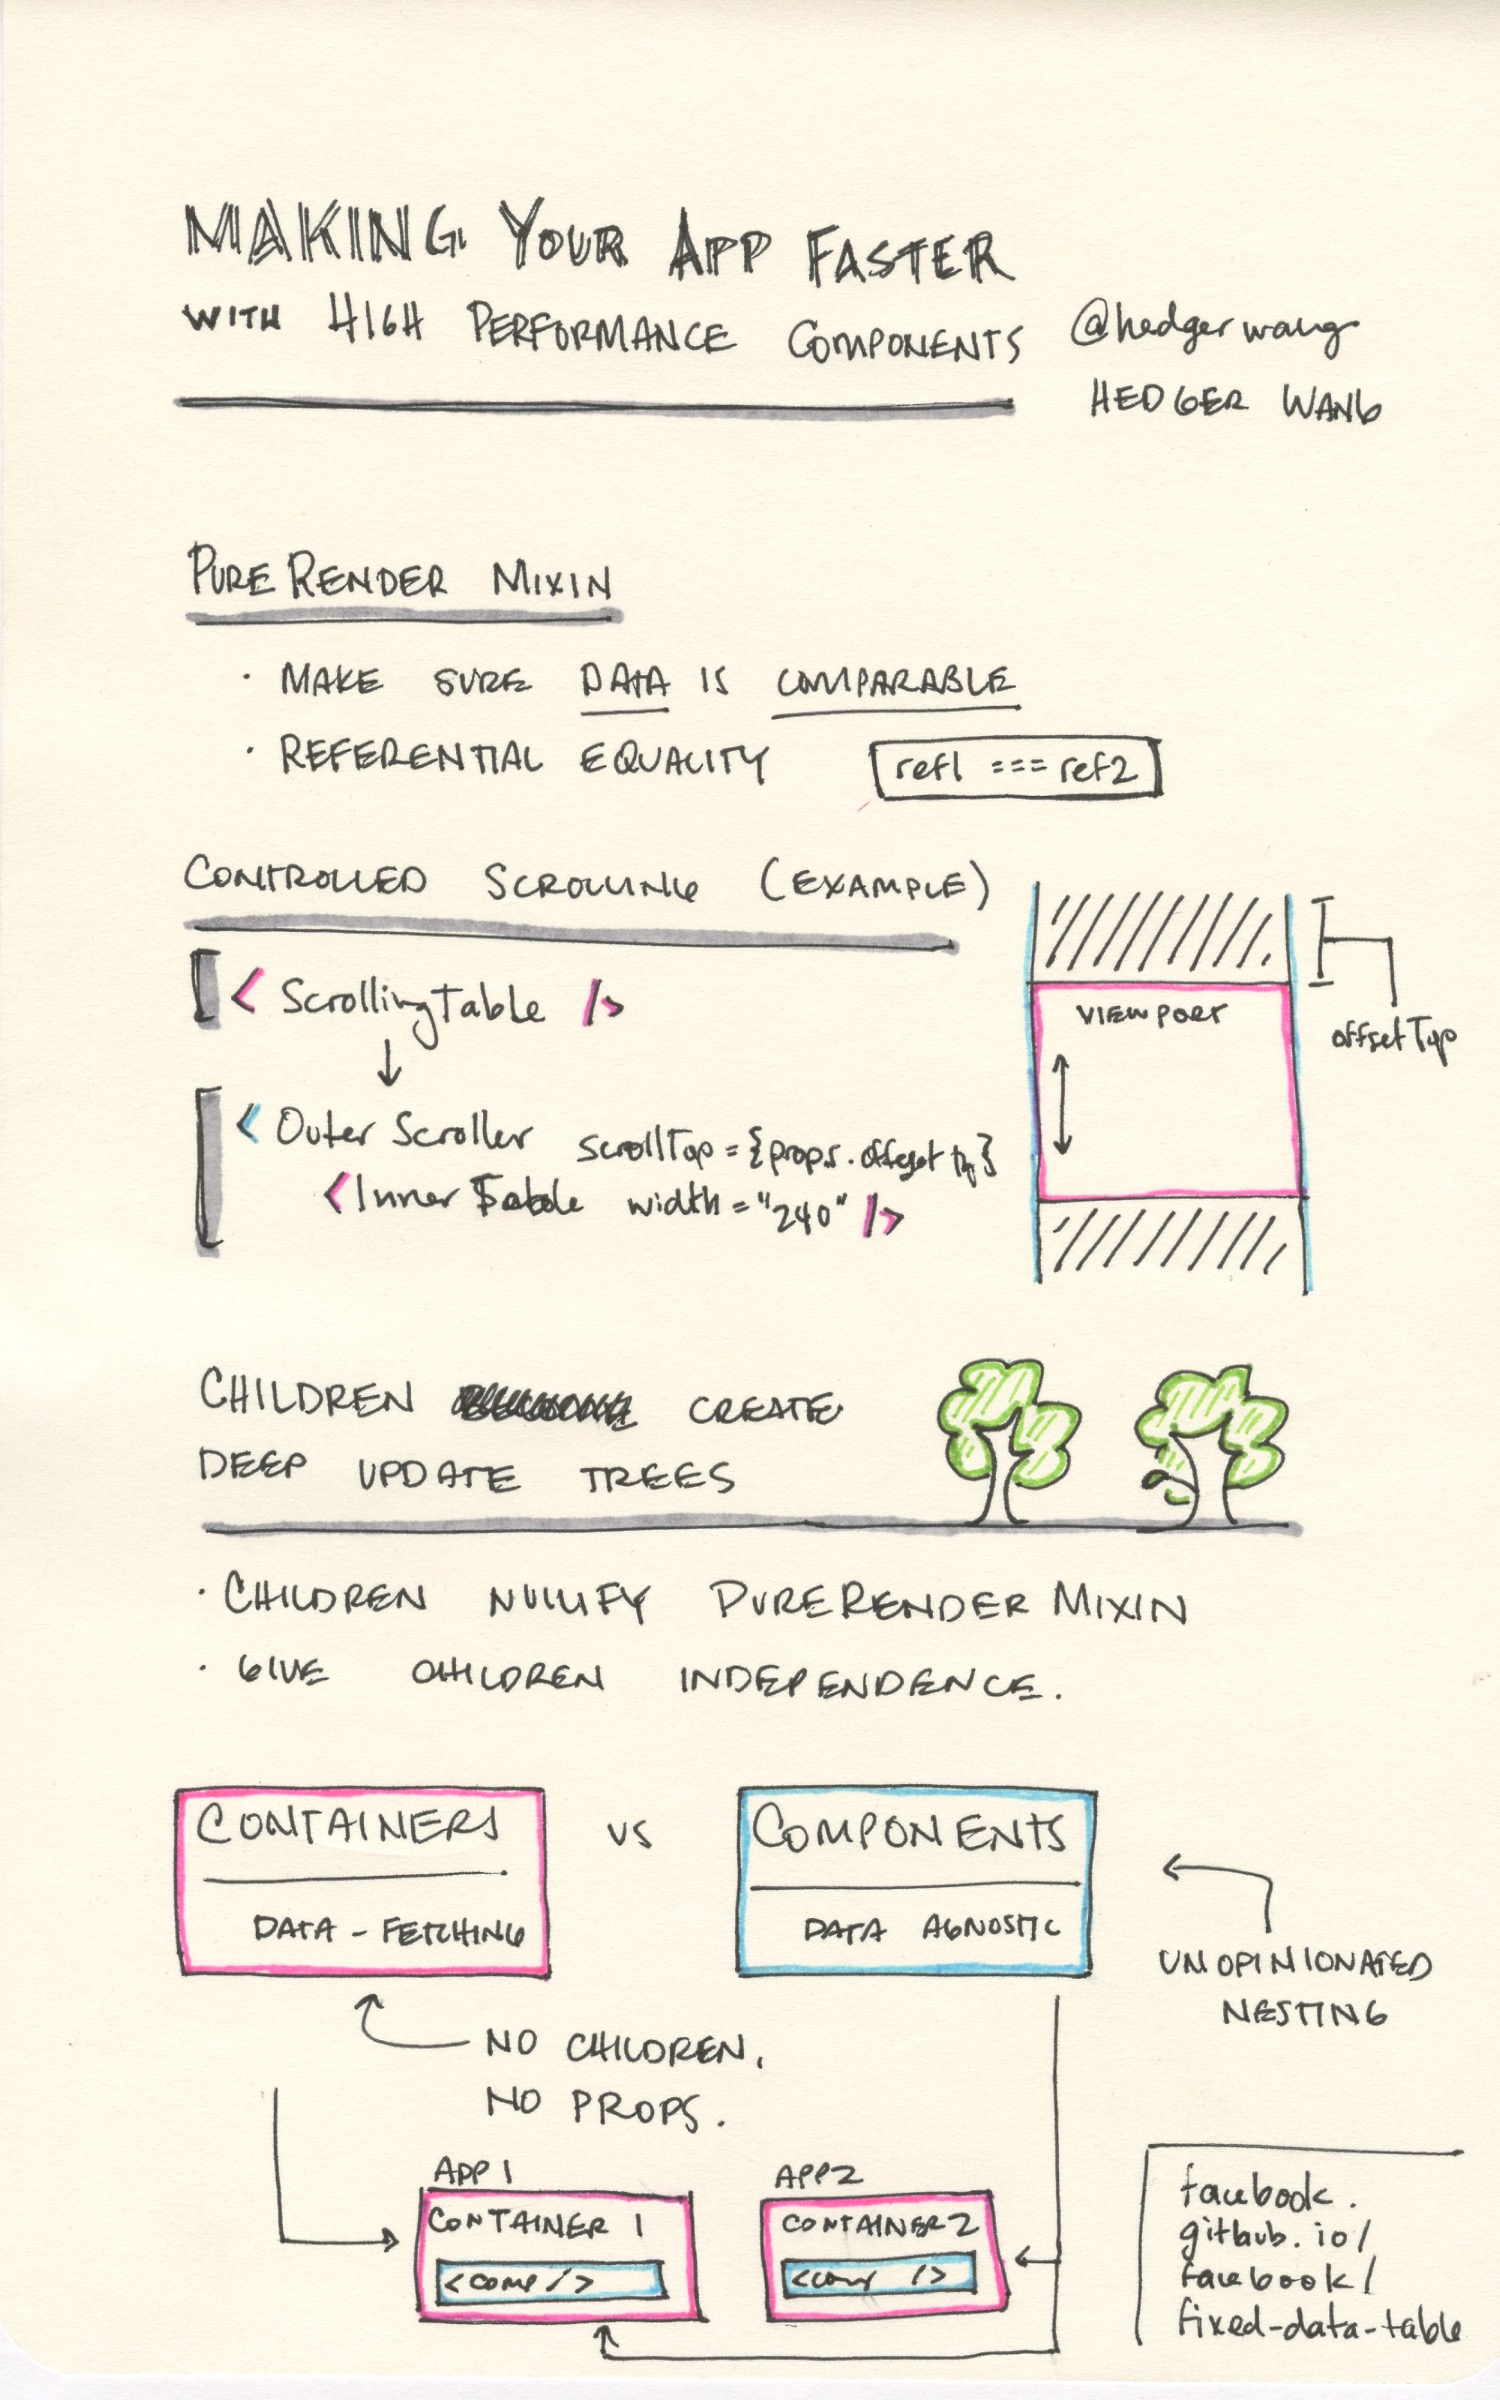 MAKING YOUR APP FASTER
WITH HIGH PERFORMANCE COMPONENTS
@hedgerwang
HEDGER WANG
PURERENDER MIXIN
· MAKE SURE DATA IS COMPARABLE
· REFERENTIAL EQUALITY ref1 === ref2
CONTROLLED SCROLLING (EXAMPLE)
< ScrollingTable />
< Outer Scroller scrollTop = {props.offsetTop}
< Inner Table width = "240" />
VIEWPORT
offsetTop
CHILDREN CREATE
DEEP UPDATE TREES
· CHILDREN NULLIFY PURERENDER MIXIN
· GIVE CHILDREN INDEPENDENCE.
CONTAINERS
DATA - FETCHING
VS
COMPONENTS
DATA AGNOSTIC
UNOPINIONATED
NESTING
NO CHILDREN.
NO PROPS.
APP 1
CONTAINER 1
<comp />
APP 2
CONTAINER 2
<comp />
facebook.
github.io/
facebook/
fixed-data-table